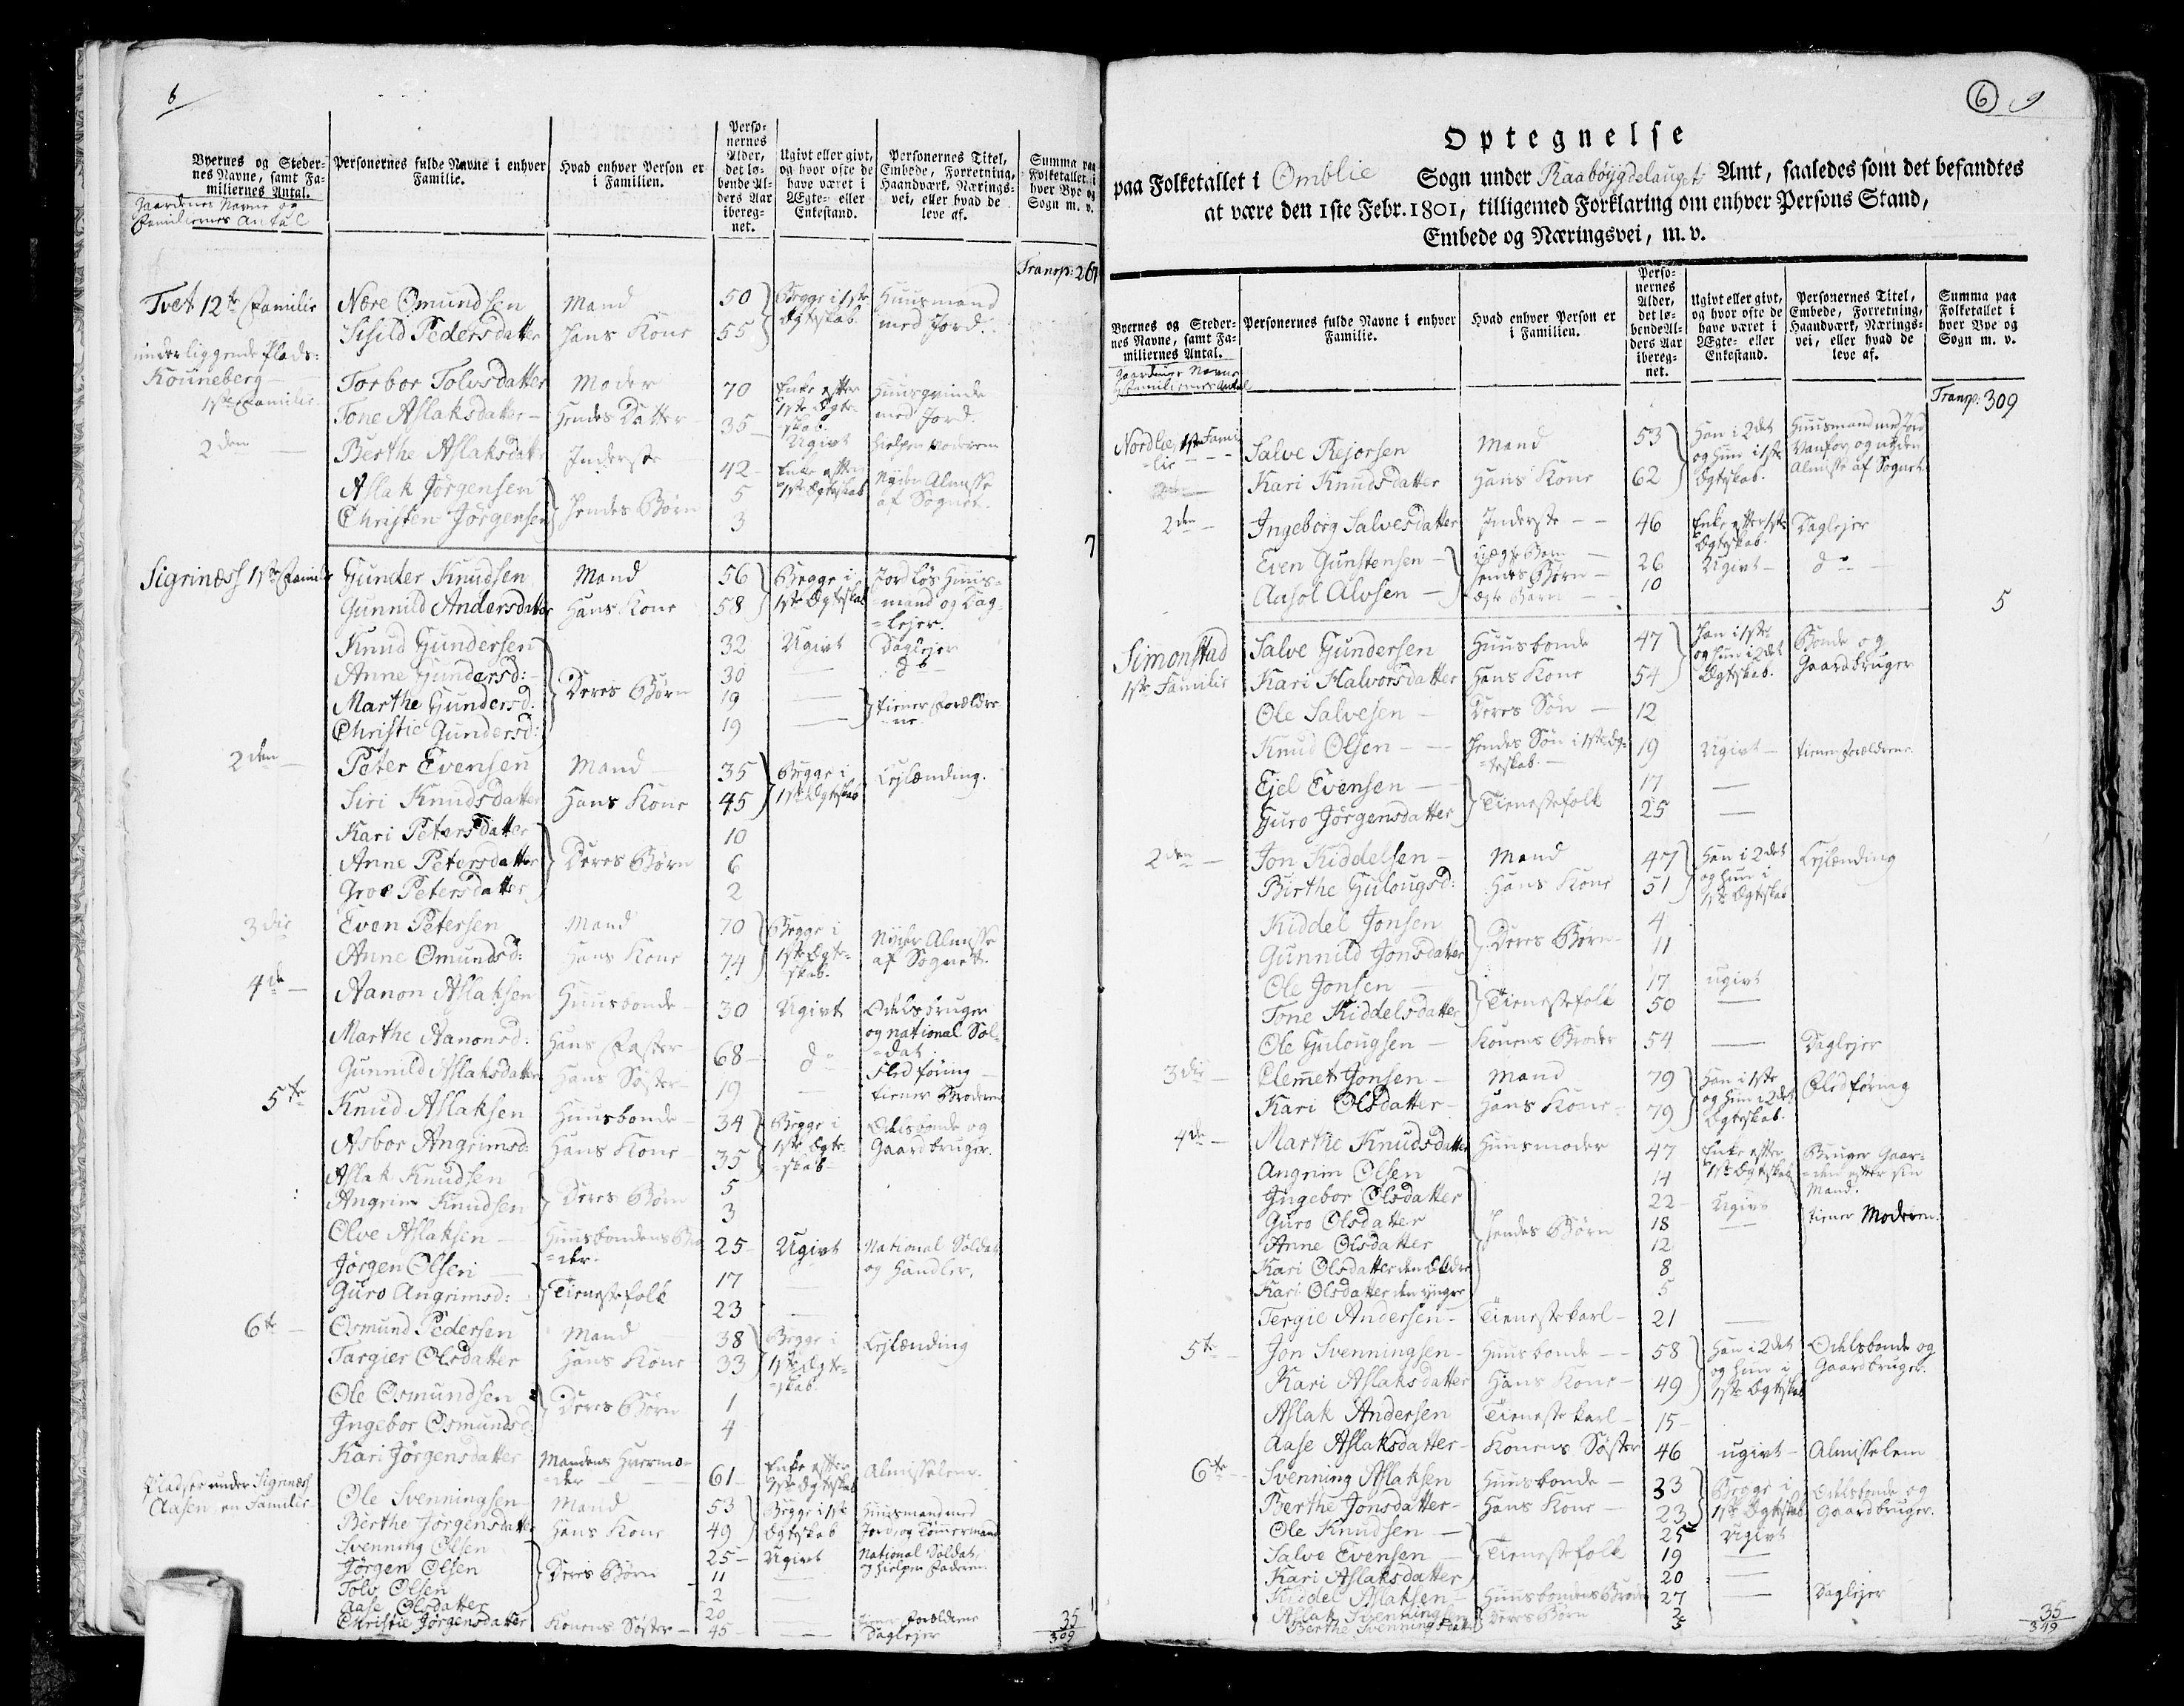 6
Byernes og Steder-
nes Navne, samt Fa-
miliernes Antal.
Gaardenes Navne og
Familiernes Antal
Personernes fulde Navne i enhver
Familie.
Hvad enhver Person er
i Familien.
Perso-
nernes
Alder,
det lø-
bende Al-
ders Aar
ibereg-
net.
Ugivt eller givt,
og hvor ofte de
have været i
Ægte- eller
Enkestand.
Personernes Titel,
Embede, Forretning,
Haandværk, Nærings-
vei, eller hvad de
leve af.
Summa paa
Folketallet i
hver Bye og
Sogn m. v.
Transp: 267
Tvet 12te Familie Nære Omundsen Mand 50 Begge i 1ste Huusmand
Sisild Pedersdatter Hans Kone 55 Ægteskab. med Jord.
underliggende Plads:
Kouneberg
1ste Familie Torbor Tolvsdatter Moder 70 Enke efter Huusqvinde
Tone Aslaksdatter Hendes Datter 35 1ste Ægte- med Jord.
skab.
Ugivt hielper Moderen
2den Berthe Aslaksdatter Inderste 42 Enke efter Nyder Almisse
Aslak Jørgensen Hendes Børn 5 1ste Ægteskab af Sognet.
Christen Jørgensen 3
7
Sigrinæss 1ste Familie Gunder Knudsen Mand 56 Begge i Jordløs Huus-
Gunnild Andersdatter Hans Kone 58 1ste Ægteskab =mand og Dag-
=lejer.
Knud Gundersen 32 Ugivt Daglejer
Anne Gundersd: Deres Børn 30 — do
Marthe Gundersd: 19 — tiener Forældre
Christie Gundersd: 19 — =ne.
2den Peter Evensen Mand 35 Begge i Lejlænding.
Siri Knudsdatter Hans Kone 45 1ste Ægteskab
Kari Petersdatter 10
Anne Petersdatter Deres Børn 6
Groe Petersdatter 2
3die Even Petersen Mand 70 Begge i Nyder Almisse
Anne Omundsd: Hans Kone 74 1ste Ægte- af Sognet
skab.
4de Aanon Aslaksen Huusbonde 30 Ugivt Odelsbruger
og national Sol-
=dat
Marthe Aanonsd: Hans Faster 68 do Fledføring
Gunnild Aslaksdatter Hans Søster 19 — tiener Broderen
5te Knud Aslaksen Huusbonde 34 Begge i Odelsbonde og
Asbor Angrimsd: Hans Kone 35 1ste Ægte- Gaardbruger.
=skab
Aslak Knudsen Deres Børn 5
Angrim Knudsen 3
Olve Aslaksen Huusbondens Bro 25 Ugivt National Soldat
=der. og Handler.
Jørgen Olsen Tienestefolk 17 —
Guro Angrimsd: 23 —
6te Osmund Pedersen Mand 38 Begge i Lejlænding
Targier Olsdatter Hans Kone 33 1ste Ægte-
=skab.
Ole Osmundsen Deres Børn 1
Ingebor Osmundsd: 4
Kari Jørgensdatter Mandens Hvermo- 61 Enke efter Almisselem.
=der 1ste Ægteskab
Pladser under Sigrinæss
Aasen en Familie Ole Svenningsen Mand 53 Begge i 1ste Huusmand med
Berthe Jørgensdatter Hans Kone 49 Ægteskab Jord og Tømmermand
Svenning Olsen 25 Ugivt National Soldat
Jørgen Olsen Deres Børn 11 — og hielper Faderen
Tolv Olsen 2
Aase Olsdatter 20 — tiener Forældrene
Christie Jørgensdatter Konens Søster 45 — Daglejer
35
309
6 9
Optegnelse
paa Folketallet i Omblie Sogn under Raabøygdelauget Amt, saaledes som det befandtes
at være den 1ste Febr. 1801, tilligemed Forklaring om enhver Persons Stand,
Embede og Næringsvei, m. v.
Byernes og Steder-
nes Navne, samt Fa-
miliernes Antal.
Gaardenes Navne
og Familiernes Antal
Personernes fulde Navne i enhver
Familie.
Hvad enhver Person er
i Familien.
Perso-
nernes
Alder,
det lø-
bende Al-
ders Aar
ibereg-
net.
Ugivt eller givt,
og hvor ofte de
have været i
Ægte- eller
Enkestand.
Personernes Titel,
Embede, Forretning,
Haandværk, Nærings-
vei, eller hvad de
leve af.
Summa paa
Folketallet i
hver Bye og
Sogn m. v.
Transp: 309
Nordlie, 1ste Fami Salve Rejersen Mand 53 Han i 2det Huusmand med Jord
=lie og hun i 1ste Vanfør og nyder
Kari Knudsdatter Hans Kone 62 Ægteskab. Almisse af Sognet
2den Ingeborg Salvesdatter Inderste 46 Enke efter 1ste Daglejer
Ægteskab.
Even Gunstensen uægte Barn 26 Ugivt do
Hendes Børn
Aasol Alvsen ægte Barn 10
5
Simonstad Salve Gundersen Huusbonde 47 Han i 1ste Bonde og
og hun i 2det
1ste Familie Kari Halvorsdatter Hans Kone 54 Ægteskab. Gaardbruger
Ole Salvesen Deres Søn 12
Knud Olsen Hendes Søn i 1ste Æg- 19 Ugivt tiener Forældrene
=teskab.
Ejel Evensen Tienestefolk 17 —
Guro Jørgensdatter 25 —
2den Jon Kiddelsen Mand 47 Han i 2det Lejlænding
Birthe Gulougsd: Hans Kone 51 og hun i
1ste Ægteskab
Kiddel Jonsen Deres Børn 4
Gunnild Jonsdatter 11
Ole Jonsen Tienestefolk 17 ugivt
Tone Kiddelsdatter 50 —
Ole Gulougsen Konens Broder 54 — Daglejer
3die Clemet Jonsen Mand 79 Han i 1ste Fledføring
Kari Olsdatter Hans Kone 79 og hun i 2det
Ægteskab.
4de Marthe Knudsdatter Huusmoder 47 Enke efter Bruger Gaar-
Angrim Olsen 14 1ste Ægteskab =den efter sin
Mand.
Ingebor Olsdatter 22 Ugivt tiener Moderen.
Guro Olsdatter Hendes Børn 18 —
Anne Olsdatter 12
Kari Olsdatter den Eldre 8
Kari Olsdatter den yngre 5
Tergie Andersen Tienestekarl 21 —
5te Jon Svenningsen Huusbonde 58 Han i 2det Odelsbonde og
Kari Aslaksdatter Hans Kone 49 og hun i Gaardbruger.
1ste Ægteskab
Aslak Andersen Tienestekarl 15
Aase Aslaksdatter Konens Søster 46 ugivt Almisselem
6te Svenning Aslaksen Huusbonde 33 Begge i Odelsbonde og
Berthe Jonsdatter Hans Kone 23 1ste Ægteskab Gaardbruger.
Ole Knudsen 25 Ugivt
Salve Evensen Tienestefolk 19 —
Kari Aslaksdatter 20 —
Kiddel Aslaksen Huusbondens Broder 27 — Daglejer
Aslak Svenningsen Deres Børn 2
Berthe Svenningsdatter 3
35
349